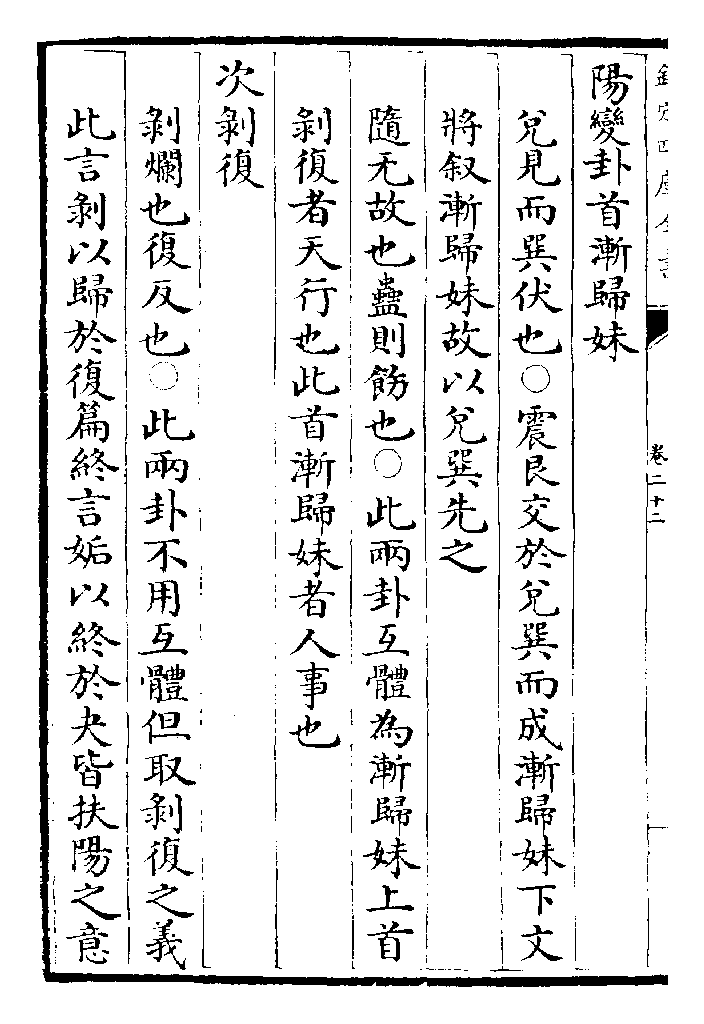 欽定四庫全書
卷二十二
陽變卦首漸歸妹
兌見而巽伏也○震艮交於兌巽而成漸歸妹下文
將叙漸歸妹故以兌巽先之
隨无故也蠱則飭也○此兩卦互體為漸歸妹上首
剝復者天行也此首漸歸妹者人事也
次剝復
剝爛也復反也○此兩卦不用互體但取剝復之義
此言剝以歸於復篇終言姤以終於夬皆扶陽之意